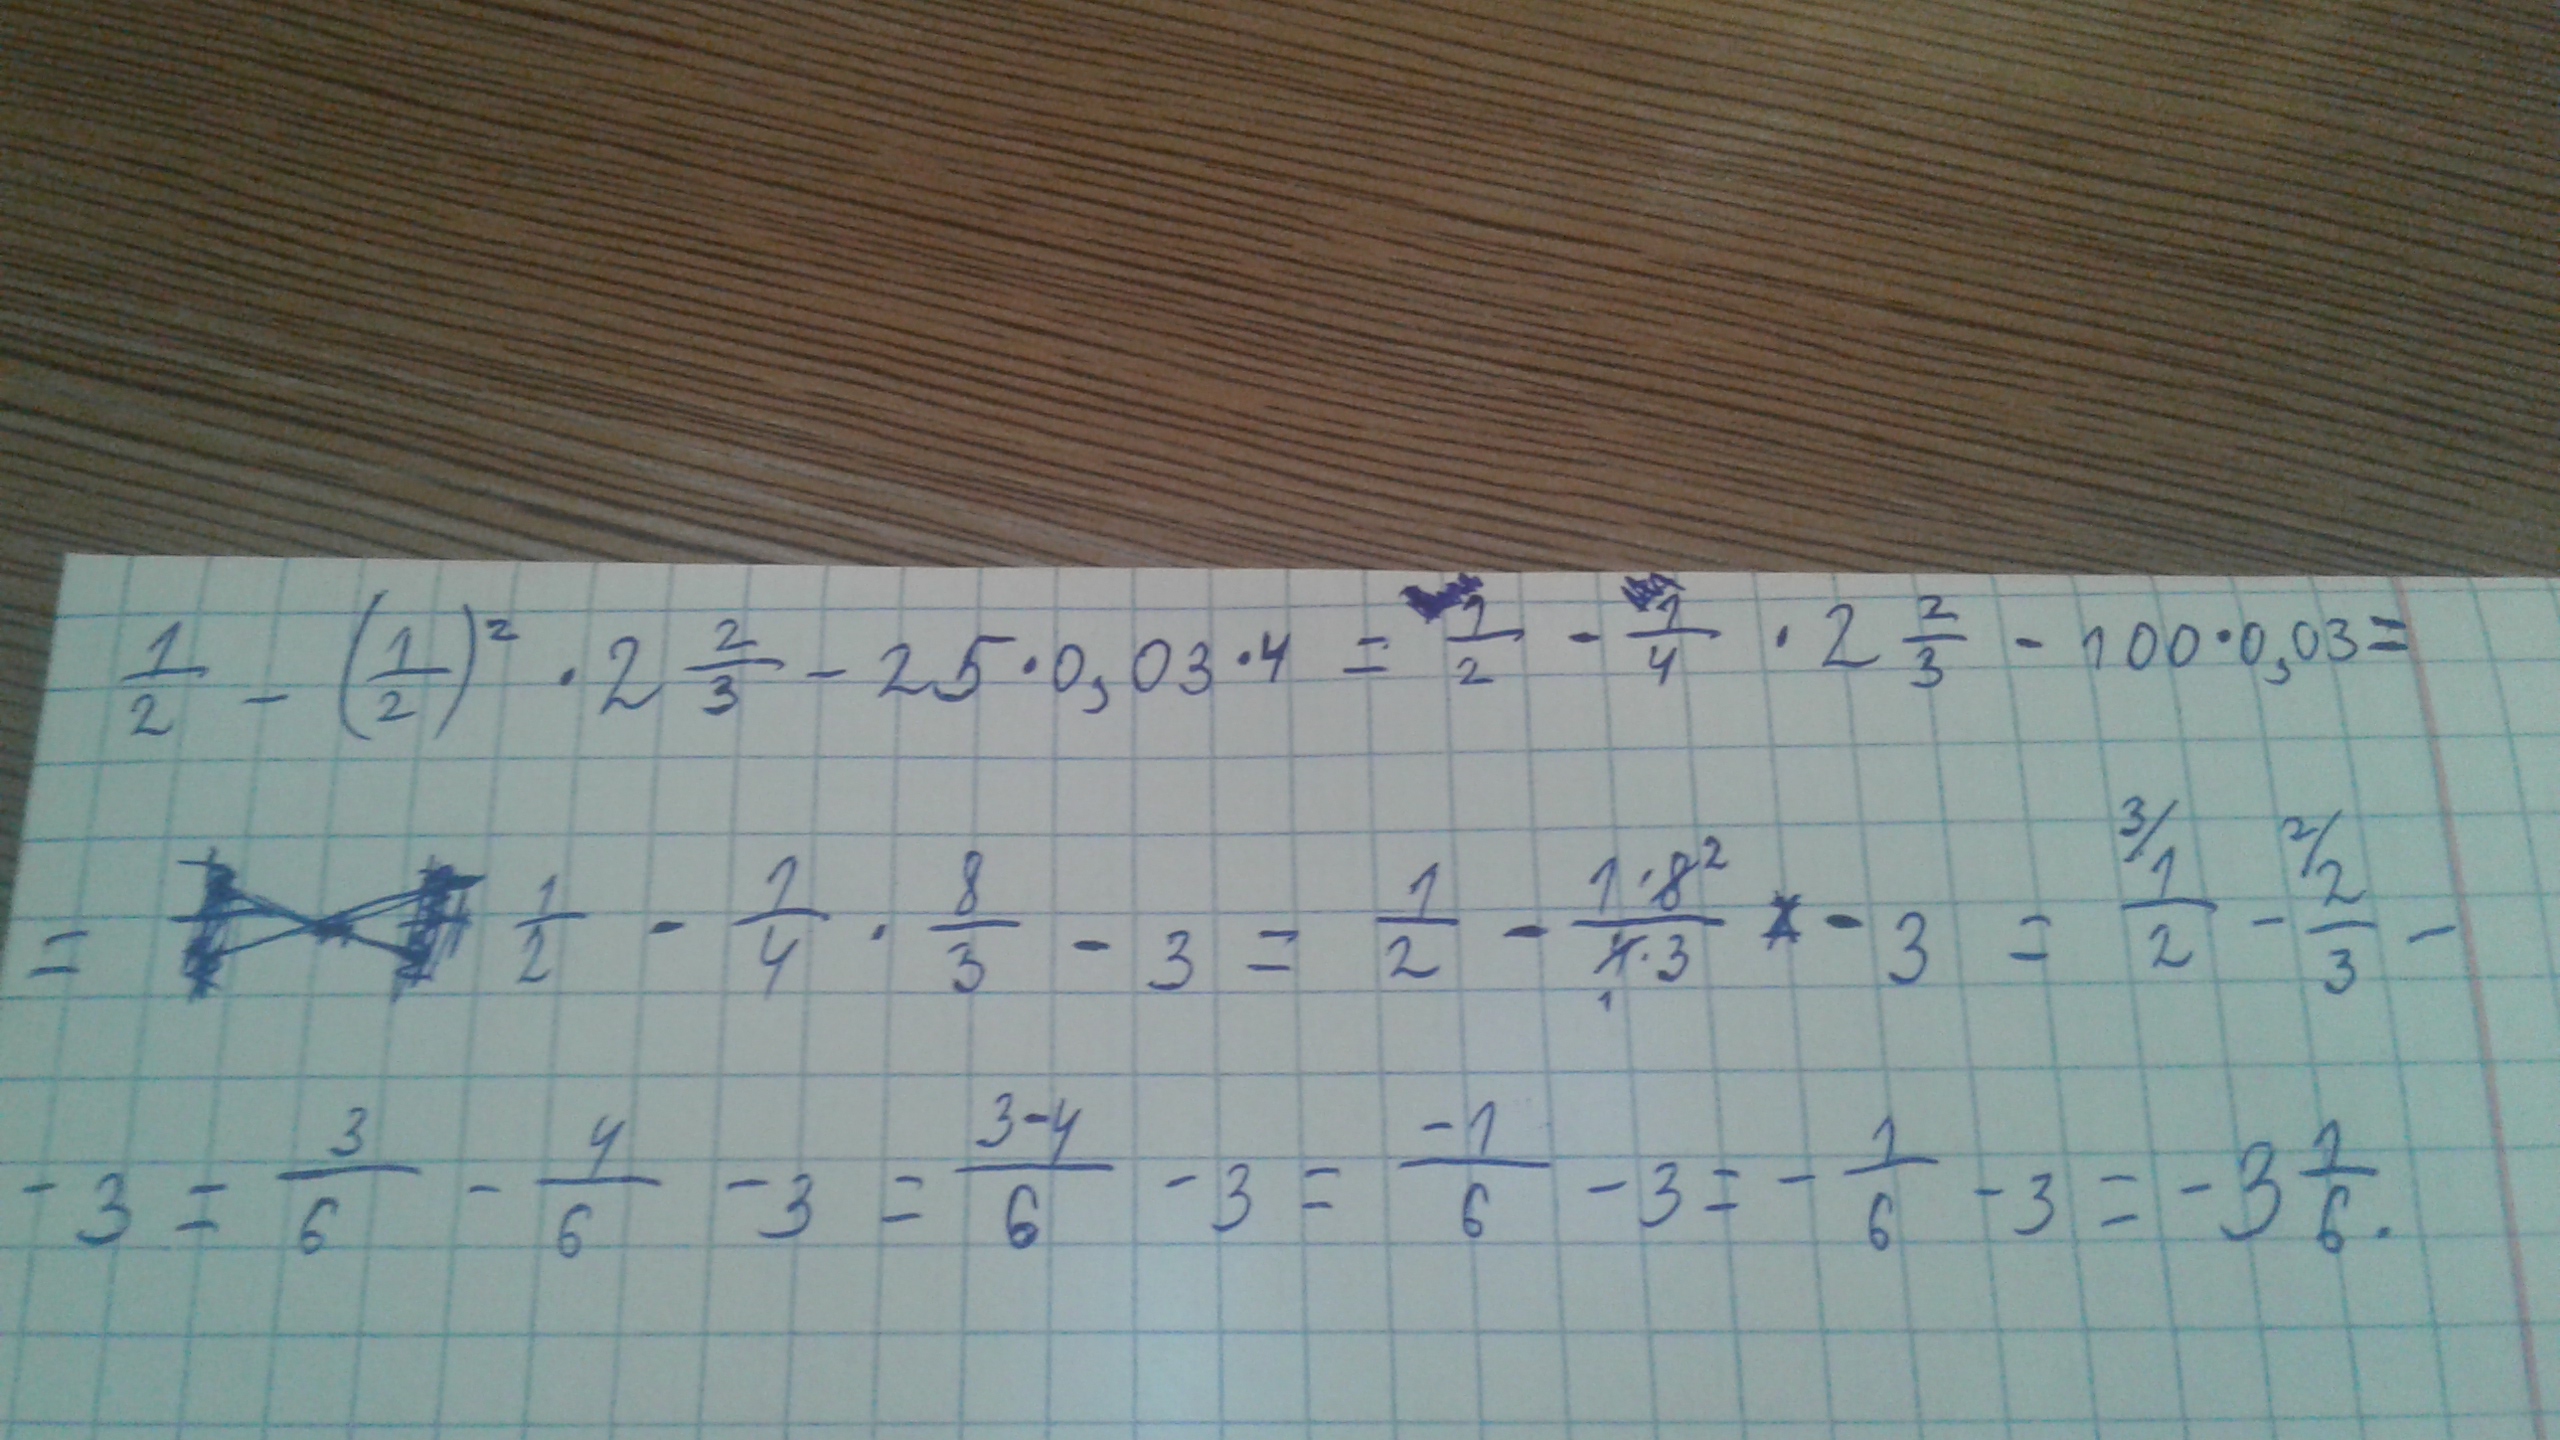 1/2 - (1/2)² · 2 2/3 - 25 · 0,03 · 4 = 1/2 - 1/4 · 2 2/3 - 100 · 0,03 =
= 1/2 - 1/4 · 8/3 - 3 = 1/2 - 1·8²/4·3₁ - 3 = ³/1/2 - ²/2/3 -
- 3 = 3/6 - 4/6 - 3 = 3-4/6 - 3 = -1/6 - 3 = - 1/6 - 3 = - 3 1/6.